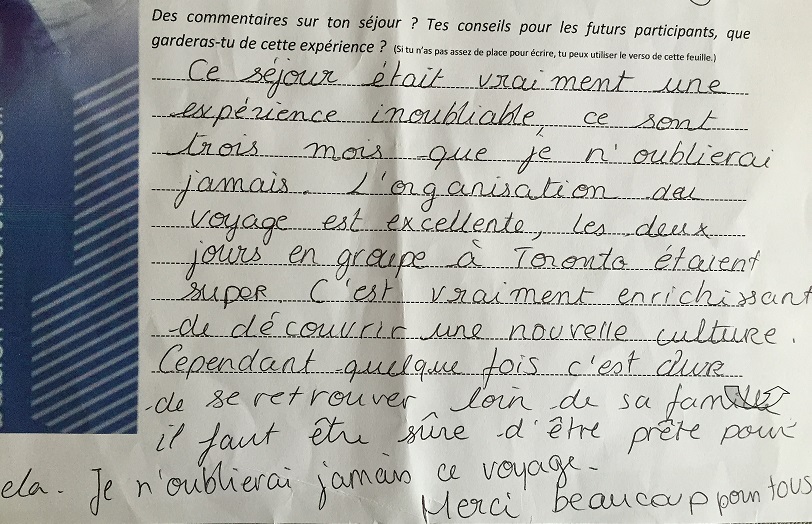 Des commentaires sur ton séjour ? Tes conseils pour les futurs participants, que
garderas-tu de cette expérience ? (Si tu n'as pas assez de place pour écrire, tu peux utiliser le verso de cette feuille.)
Ce séjour était vraiment une
expérience inoubliable, ce sont
trois mois que je n'oublierai
jamais. L'organisation du
voyage est excellente, les deux
jours en groupe à Toronto étaient
super. C'est vraiment enrichissant
de découvrir une nouvelle culture.
Cependant quelque fois c'est dure
de se retrouver loin de sa famille
il faut être sûre d'être prête pour
ela. Je n'oublierai jamais ce voyage.
Merci beaucoup pour tous